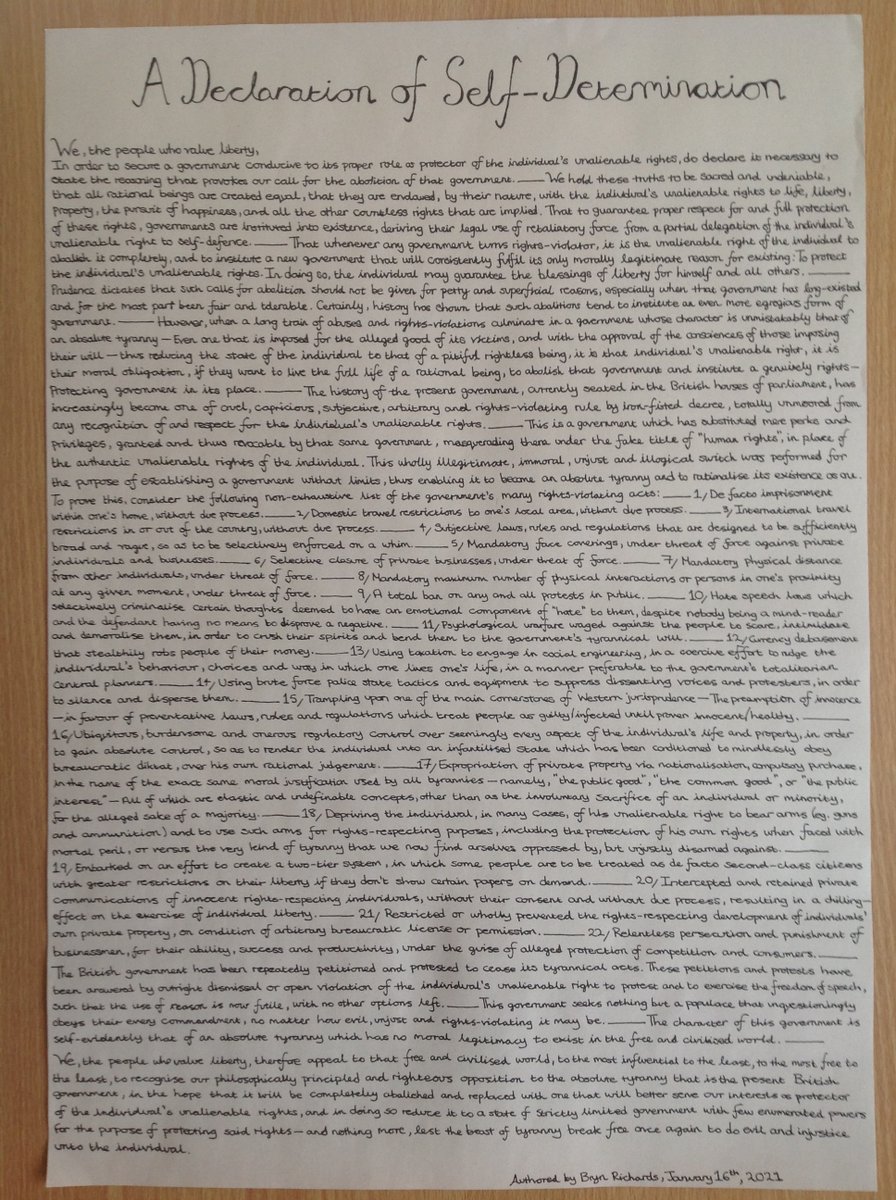 A Declaration of Self-Detemination
We, the people who value liberty,
In order to secure a government conducive to its proper role as protector of the individual's unalienable rights, do declare it necessary to
state the reasoning that provokes our call for the abolition of that government. —— We hold these truths to be sacred and undeniable,
that all rational beings are created equal, that they are endowed, by their nature, with the individual's unalienable rights to life, liberty,
property, the pursuit of happiness, and all the other countless rights that are implied. That to guarantee proper respect for and full protection
of these rights, governments are instituted into existence, deriving their legal use of retaliatory force from a partial delegation of the individual's
unalienable right to self-defence. —— That whenever any government turns rights-violator, it is the unalienable right of the individual to
abolish it completely, and to institute a new government that will consistently fulfil its only morally legitimate reason for existing: To protect
the individual's unalienable rights. In doing so, the individual may guarantee the blessings of liberty for himself and all others. ——
Prudence dictates that such calls for abolition should not be given for petty and superficial reasons, especially when that government has long-existed
and for the most part been fair and tolerable. Certainly, history has shown that such abolitions tend to institute an even more egregious form of
government. —— However, when a long train of abuses and rights-violations culminate in a government whose character is unmistakably that of
an absolute tyranny — Even one that is imposed for the alleged good of its victims, and with the approval of the consciences of those imposing
their will — thus reducing the state of the individual to that of a pitiful rightless being, it is that individual's unalienable right, it is
their moral obligation, if they want to live the full life of a rational being, to abolish that government and institute a genuinely rights-
Protecting government in its place. —— The history of the present government, currently seated in the British houses of parliament, has
increasingly become one of cruel, capricious, subjective, arbitrary and rights-violating rule by iron-fisted decree, totally unmoored from
any recognition of and respect for the individual's unalienable rights. —— This is a government which has substituted mere perks and
privileges, granted and thus revocable by that same government, masquerading them under the fake title of "human rights", in place of
the authentic unalienable rights of the individual. This wholly illegitimate, immoral, unjust and illogical switch was performed for
the purpose of establishing a government without limits, thus enabling it to become an absolute tyranny and to rationalise its existence as one.
To prove this, consider the following non-exhaustive list of the government's many rights-violating acts: —— 1/ De facto imprisonment
within one's home, without due process. —— 2/ Domestic travel restrictions to one's local area, without due process. —— 3/ International travel
restrictions in or out of the country, without due process. —— 4/ Subjective laws, rules and regulations that are designed to be sufficiently
broad and vague, so as to be selectively enforced on a whim. —— 5/ Mandatory face coverings, under threat of force against private
individuals and businesses. —— 6/ Selective closure of private businesses, under threat of force. —— 7/ Mandatory physical distance
from other individuals, under threat of force. —— 8/ Mandatory maximum number of physical interactions or persons in one's proximity
at any given moment, under threat of force. —— 9/ A total ban on any and all protests in public. —— 10/ Hate speech laws which
selectively criminalise certain thoughts deemed to have an emotional component of "hate" to them, despite nobody being a mind-reader
and the defendant having no means to disprove a negative. —— 11/ Psychological warfare waged against the people to scare, intimidate
and demoralise them, in order to crush their spirits and bend them to the government's tyrannical will. —— 12/ Currency debasement
that stealthily robs people of their money. —— 13/ Using taxation to engage in social engineering, in a coercive effort to nudge the
individual's behaviour, choices and way in which one lives one's life, in a manner preferable to the government's totalitarian
central planners. —— 14/ Using brute force police state tactics and equipment to suppress dissenting voices and protesters, in order
to silence and disperse them. —— 15/ Trampling upon one of the main cornerstones of Western jurisprudence — The presumption of innocence
— in favour of preventative laws, rules and regulations which treat people as guilty/infected until proven innocent/healthy. ——
16/ Ubiquitous, burdensome and onerous regulatory control over seemingly every aspect of the individual's life and property, in order
to gain absolute control, so as to render the individual unto an infantilised state which has been conditioned to mindlessly obey
bureaucratic diktat, over his own rational judgement. —— 17/ Expropriation of private property via nationalisation, compulsory purchase,
in the name of the exact same moral justification used by all tyrannies — namely, "the public good", "the common good", or "the public
interest" — All of which are elastic and undefinable concepts, other than as the involuntary sacrifice of an individual or minority,
for the alleged sake of a majority. —— 18/ Depriving the individual, in many cases, of his unalienable right to bear arms (eg. guns
and ammunition) and to use such arms for rights-respecting purposes, including the protection of his own rights when faced with
mortal peril, or versus the very kind of tyranny that we now find ourselves oppressed by, but unjustly disarmed against. ——
19/ Embarked on an effort to create a two-tier system, in which some people are to be treated as de facto second-class citizens
with greater restrictions on their liberty if they don't show certain papers on demand. —— 20/ Intercepted and retained private
communications of innocent rights-respecting individuals, without their consent and without due process, resulting in a chilling-
effect on the exercise of individual liberty. —— 21/ Restricted or wholly prevented the rights-respecting development of individuals'
own private property, on condition of arbitrary bureaucratic license or permission. —— 22/ Relentless persecution and punishment of
businessmen, for their ability, success and productivity, under the guise of alleged protection of competition and consumers. ——
The British government has been repeatedly petitioned and protested to cease its tyrannical acts. These petitions and protests have
been answered by outright dismissal or open violation of the individual's unalienable right to protest and to exercise the freedom of speech,
such that the use of reason is now futile, with no other options left. —— This government seeks nothing but a populace that unquestioningly
obeys their every commandment, no matter how evil, unjust and rights-violating it may be. —— The character of this government is
self-evidently that of an absolute tyranny which has no moral legitimacy to exist in the free and civilised world. ——
We, the people who value liberty, therefore appeal to that free and civilised world, to the most influential to the least, to the most free to
the least, to recognise our philosophically principled and righteous opposition to the absolute tyranny that is the present British
government, in the hope that it will be completely abolished and replaced with one that will better serve our interests as protector
of the individual's unalienable rights, and in doing so reduce it to a state of strictly limited government with few enumerated powers
for the purpose of protecting said rights — and nothing more, lest the beast of tyranny break free once again to do evil and injustice
unto the individual.
Authored by Bryn Richards, January 16th, 2021